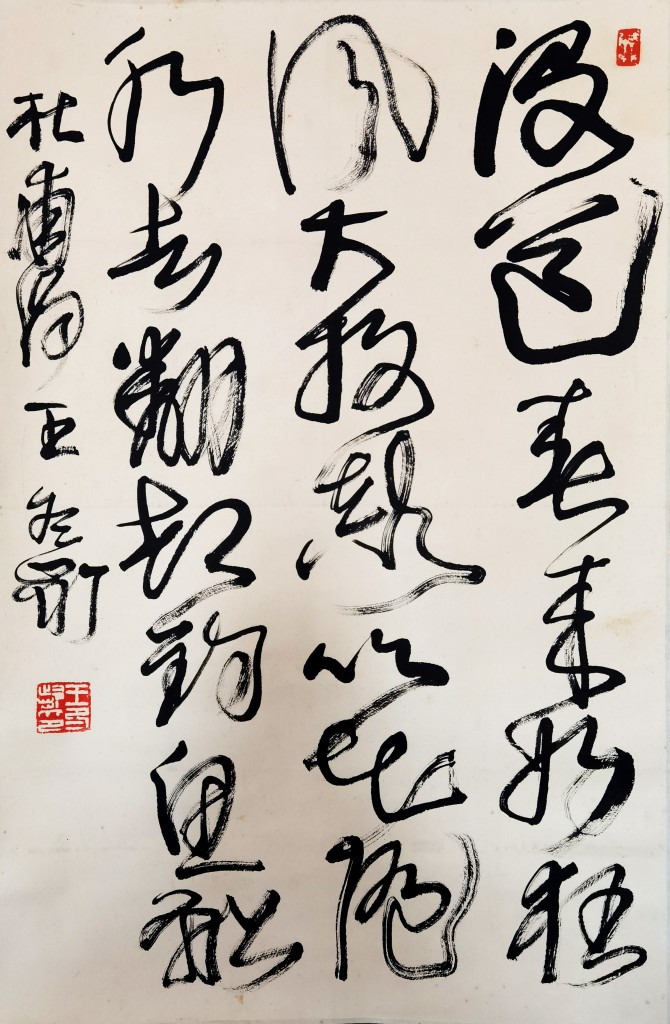 漫道春来好狂
风大放颠吹花随
水去翻却钓鱼船
杜甫句 王冬龄